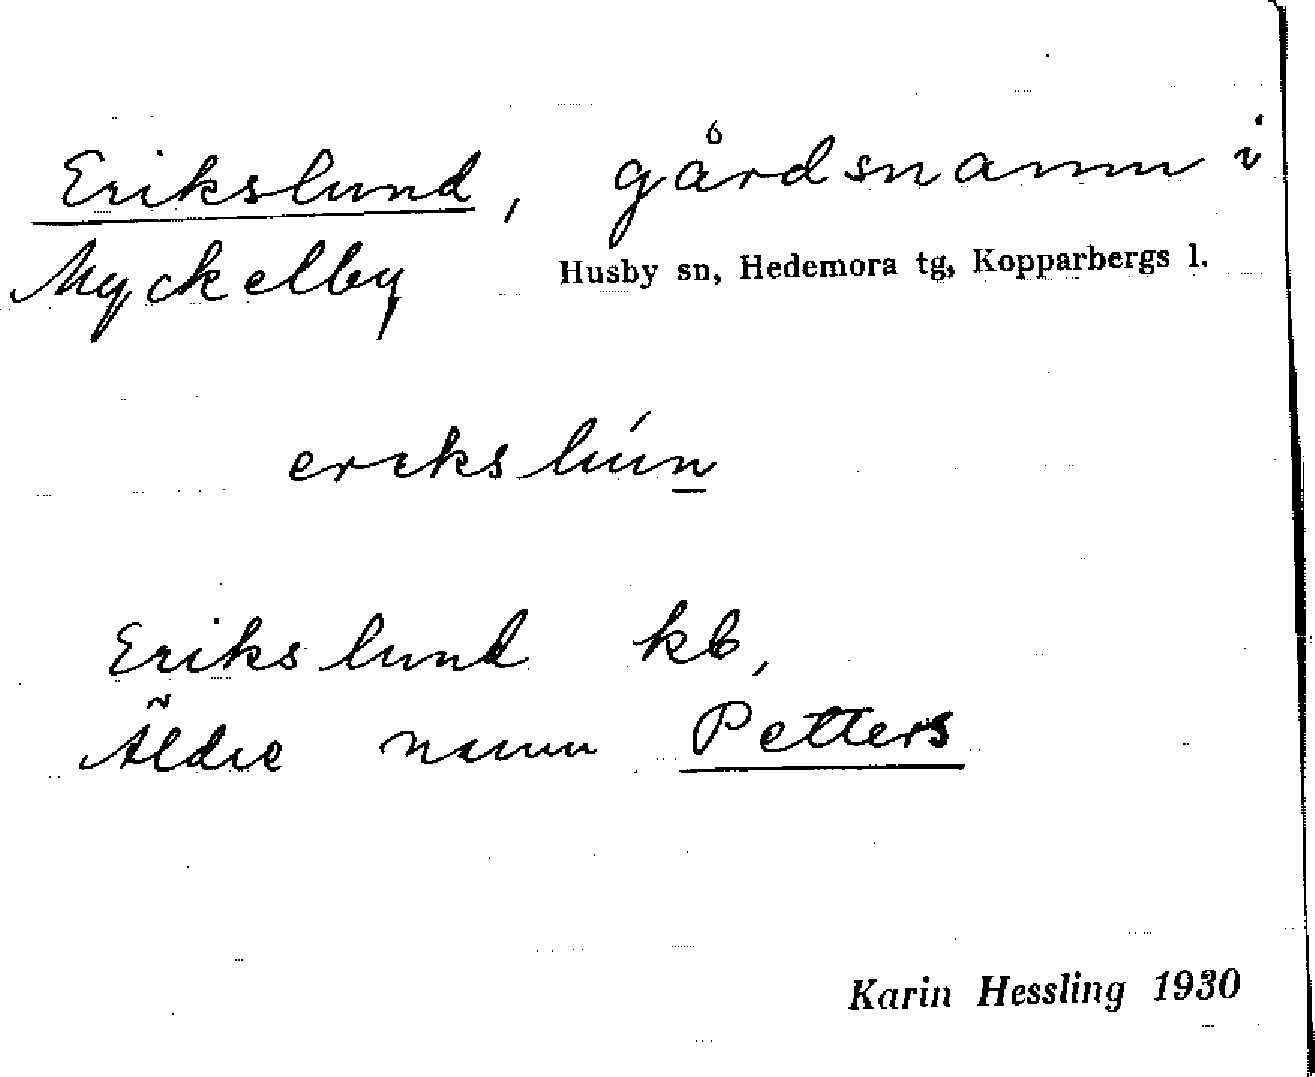 Erikslund, gårdsnamn i
Myckelby Husby sn, Hedemora tg, Kopparbergs l.
erikslún̲
Erikslund kb,
Äldre namn Petters
Karin Hessling 1930